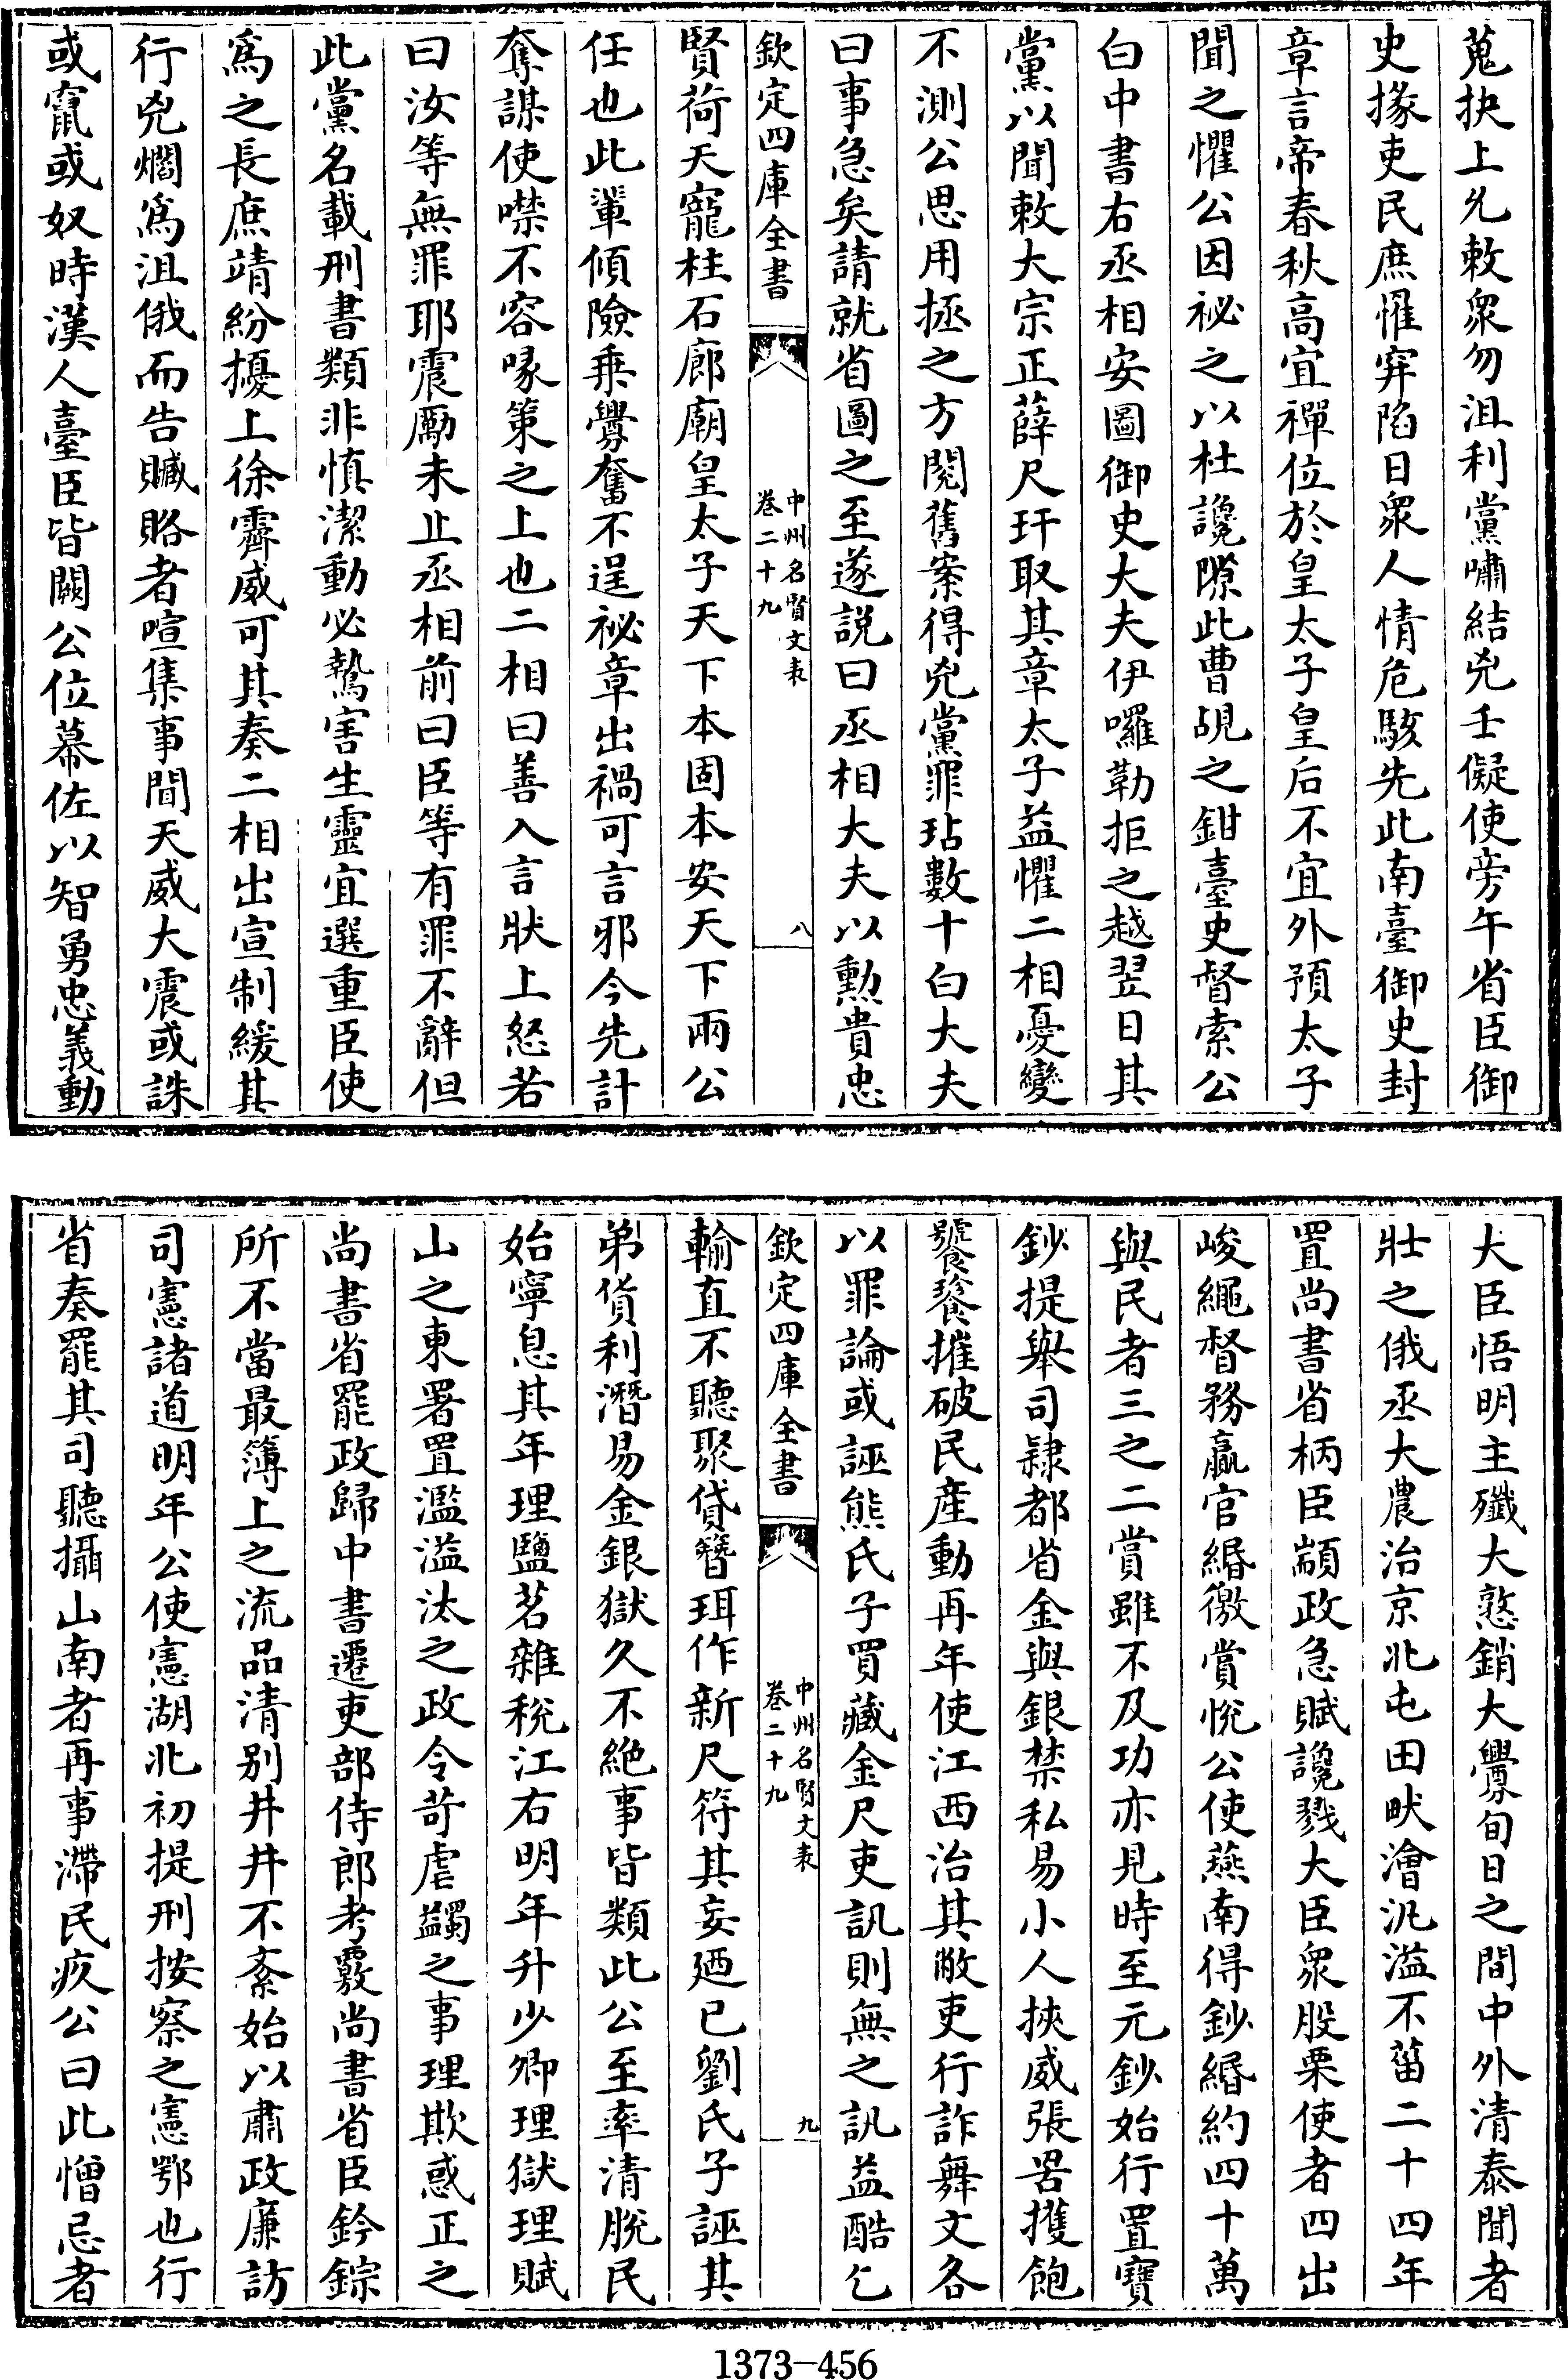 蒐抉上允敕衆勿沮利黨嘯結兇壬儗使旁午省臣御
史掾吏民庶懼穽陷日衆人情危駭先此南臺御史封
章言帝春秋高宜禪位於皇太子皇后不宜外預太子
聞之懼公因祕之以杜讒隙此曹覘之鉗臺史督索公
白中書右丞相安圖御史大夫伊囉勒拒之越翌日其
黨以聞敕大宗正薛尺玕取其章太子益懼二相憂變
不測公思用拯之方閱舊案得兇黨罪玷數十白大夫
曰事急矣請就省圖之至遂説曰丞相大夫以勲貴忠
欽定四庫全書
中州名賢文表
卷二十九
八
賢荷天寵柱石廊廟皇太子天下本固本安天下兩公
任也此輩傾險乗釁奮不逞祕章出禍可言邪今先計
奪謀使噤不容喙策之上也二相曰善入言狀上怒若
曰汝等無罪耶震勵未止丞相前曰臣等有罪不辭但
此黨名載刑書類非慎潔動必鷙害生靈宜選重臣使
爲之長庶靖紛擾上徐霽威可其奏二相出宣制緩其
行兇爓爲沮俄而告贓賂者喧集事聞天威大震或誅
或竄或奴時漢人臺臣皆闕公位幕佐以智勇忠義動
大臣悟明主殲大憝銷大釁旬日之間中外清泰聞者
壯之俄丞大農治京北屯田畎澮氾溢不菑二十四年
置尚書省柄臣顓政急賦讒戮大臣衆股栗使者四出
峻繩督務羸官緡徼賞悦公使燕南得鈔緡約四十萬
與民者三之二賞雖不及功亦見時至元鈔始行置寶
鈔提舉司隷都省金與銀禁私易小人挾威張罟擭飽
饕餮摧破民産動再年使江西治其敝吏行詐舞文各
以罪論或誣熊氏子買藏金尺吏訊則無之訊益酷乞
欽定四庫全書
中州名賢文表
卷二十九
九
輸直不聽聚貸簪珥作新尺符其妄廼已劉氏子誣其
弟貨利潛易金銀獄久不絶事皆類此公至率清脱民
始寧息其年理鹽茗雜税江右明年升少卿理獄理賦
山之東署置濫溢汰之政令苛虐蠲之事理欺惑正之
尚書省罷政歸中書遷吏部侍郎考覈尚書省臣鈐綜
所不當最簿上之流品清别井井不紊始以肅政廉訪
司憲諸道明年公使憲湖北初提刑按察之憲鄂也行
省奏罷其司聽攝山南者再事滯民疚公曰此憎忌者
1373-456